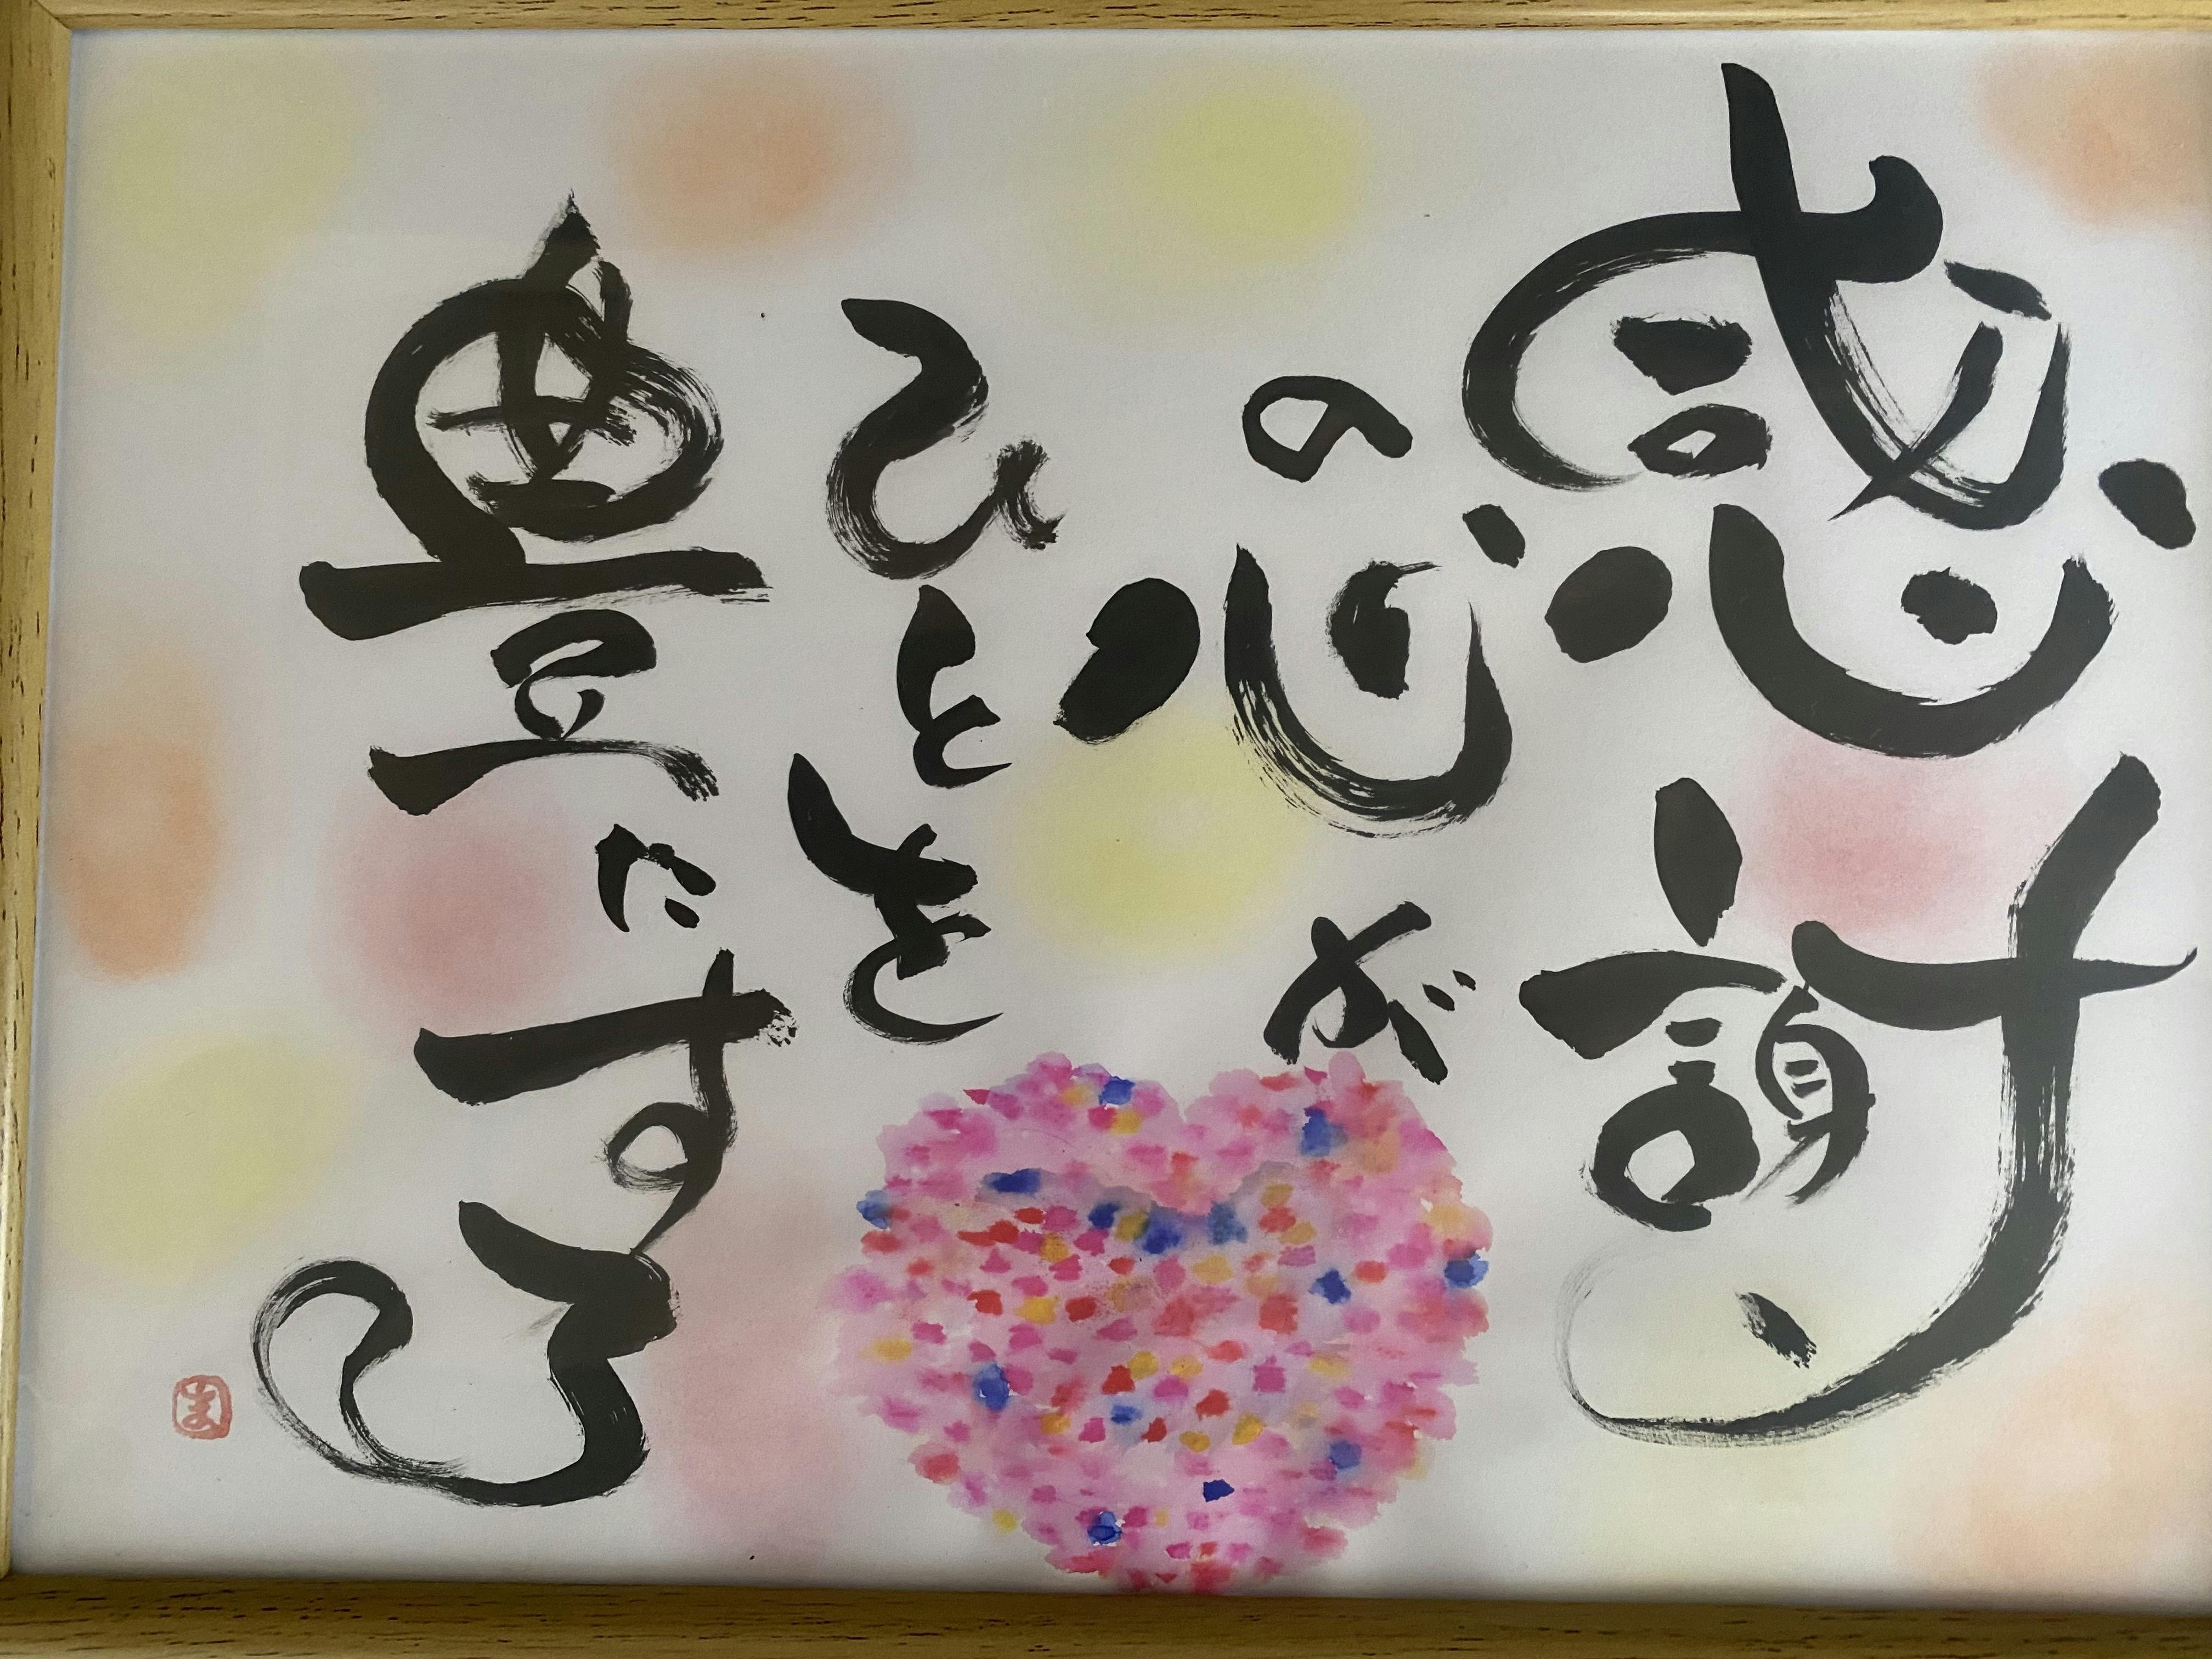 感謝
の心が
ひとを
豊にする
ま